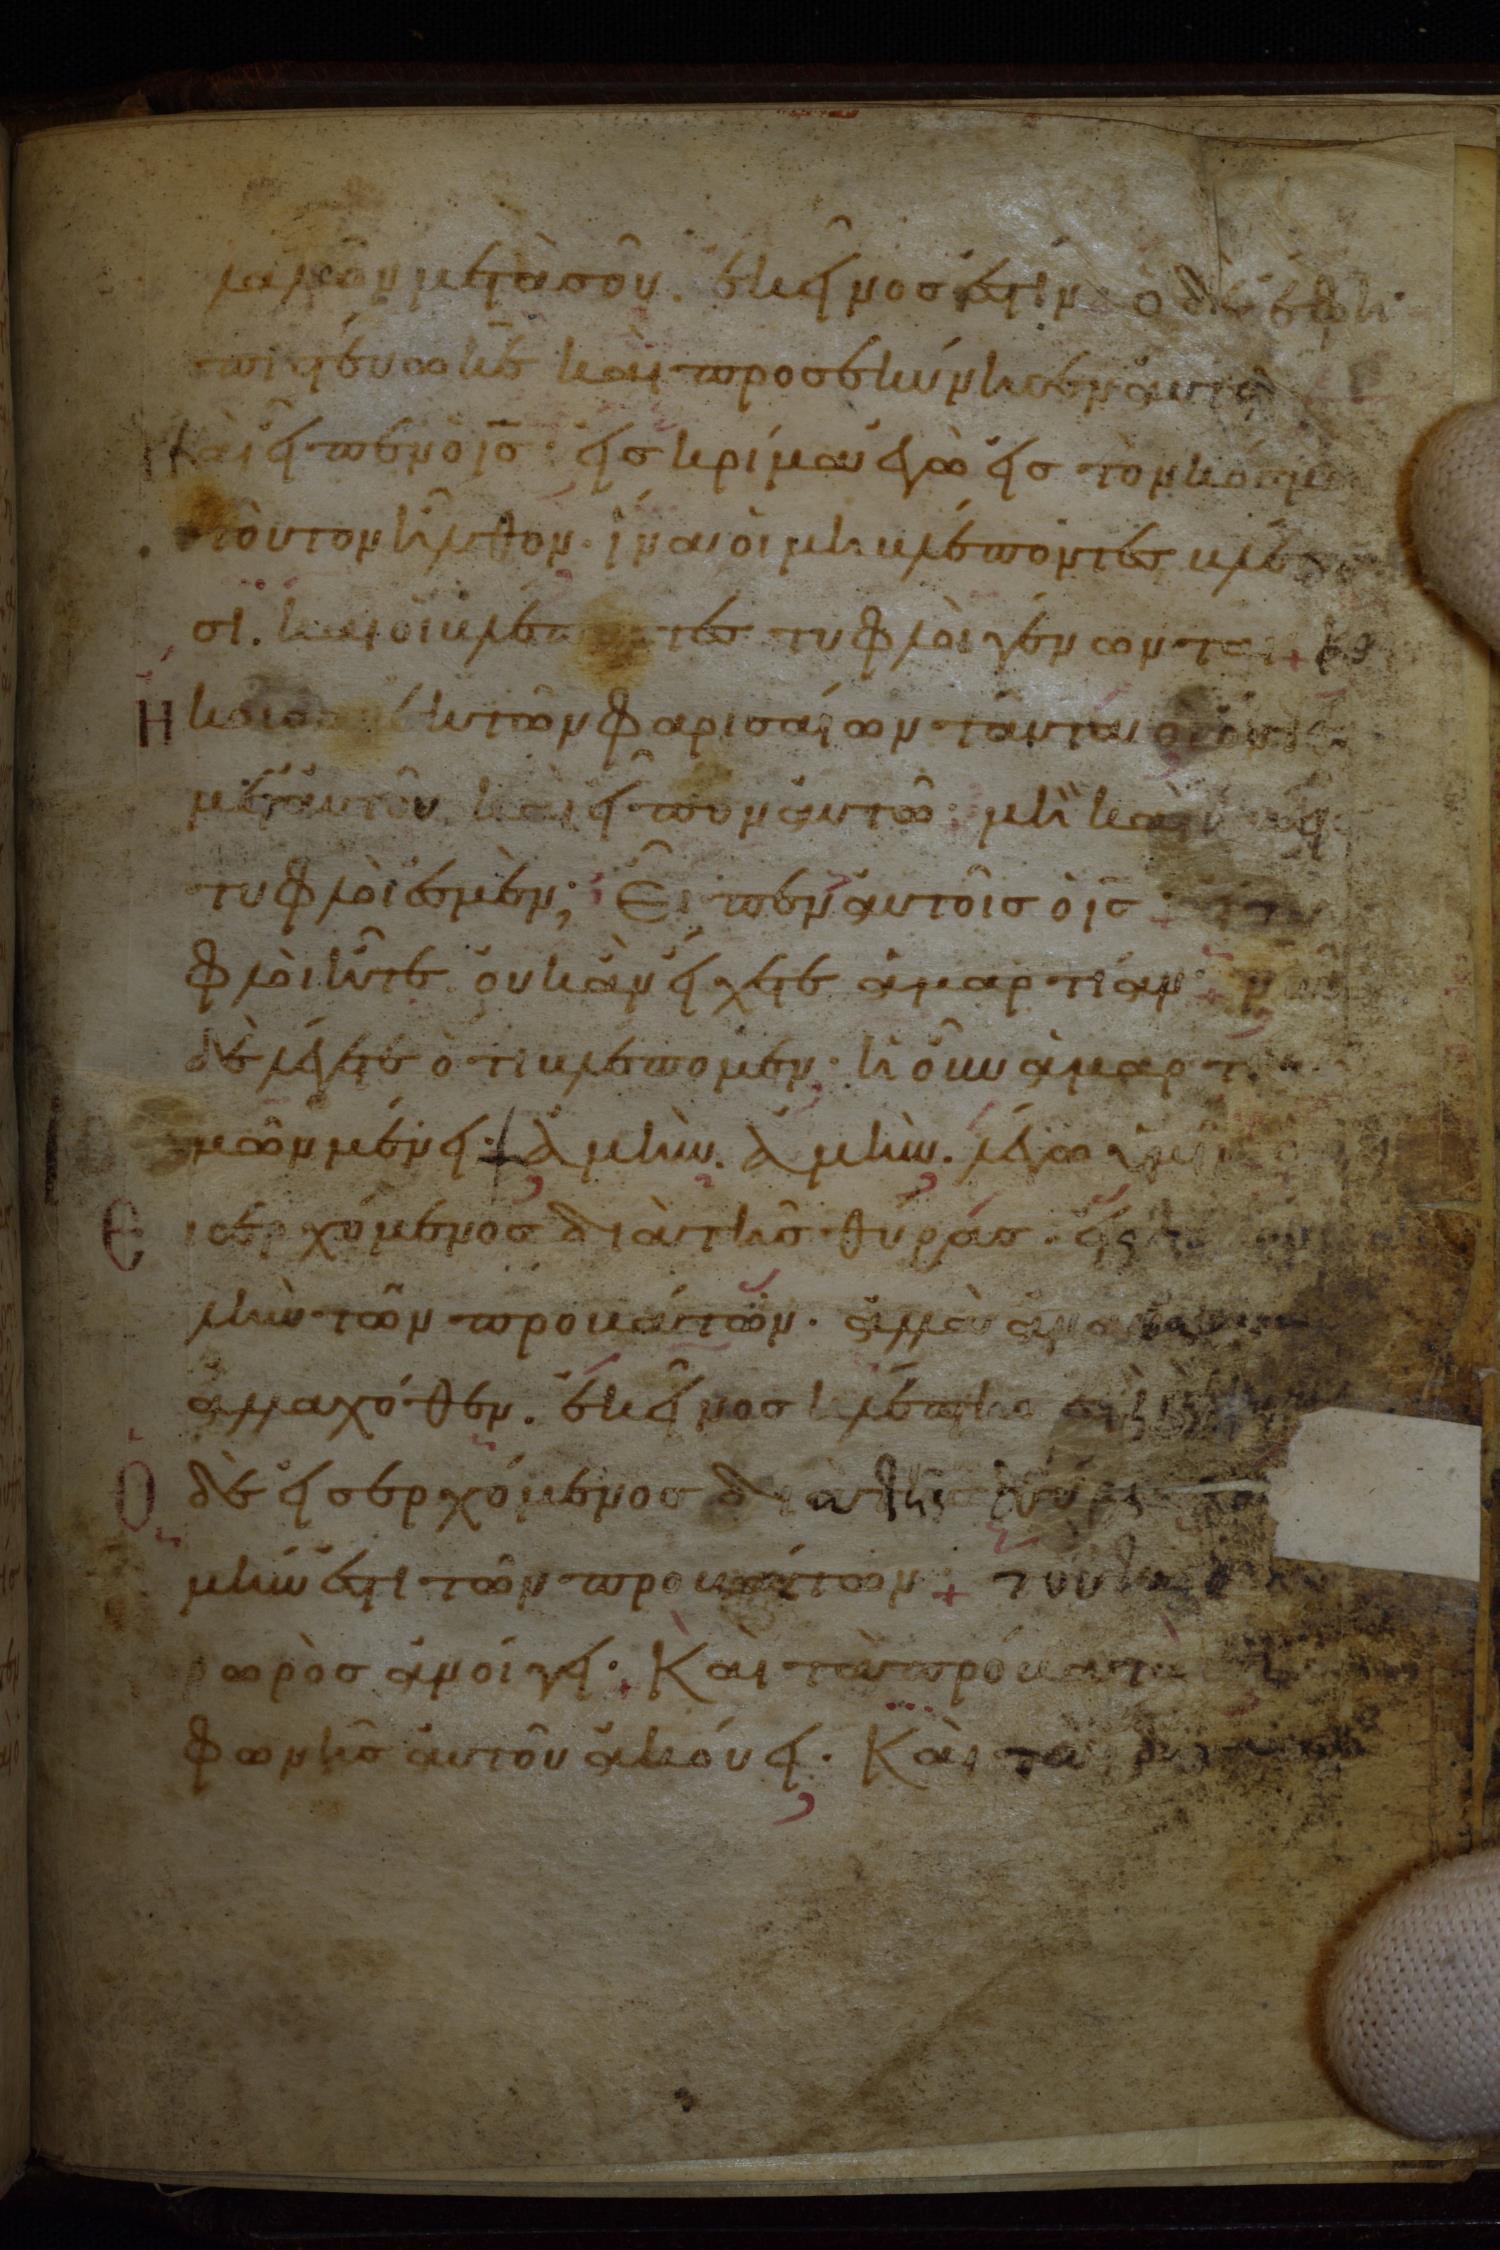 λαλῶν μετὰ σοῦ. ἐκεῖνος ἐστὶν ὁ δὲ ἔφη·
πιστεύω κε καὶ προσεκύνησεν αὐτῶ
Καὶ εἶπεν ὁ ις· εἰς κρίμα ἐγὼ εἰς τὸν κόσμο
τοῦτον ἦλθον· ἵνα οἱ μὴ βλέποντες βλέ
σι. καὶ οἱ βλέποντες τυφλοὶ γένωνται +
Ηκουσαν ἐκ τῶν φαρισαίων ταῦτα οἱ ὄντες
μετ' αὐτοῦ καὶ εἶπον αὐτῶ· μὴ καὶ ἡμεῖς
τυφλοί ἐσμεν; Εἶπεν αὐτοῖς ὁ ις· εἰ τυ
φλοὶ ἦτε οὐκ ἂν εἴχετε ἁμαρτίαν· νῦν
δὲ λέγετε ὅτι βλέπομεν· ἡ οὖν ἁμαρτ
μῶν μένει· + ἀμὴν. ἀμὴν. λέγω ὑμῖν
ἰσερχόμενος διὰ τῆς θύρας. εἰς τ
λὴν τῶν προβάτων. ἀλλὰ ἀναβαίνων
ἀλλαχόθεν. ἐκεῖνος κλέπτης ἐστὶ
Ο δὲ εἰσερχόμενος διὰ τῆς θύρας
μήν ἐστι τῶν προβάτων + τούτω ὁ
ρωρὸς ἀνοίγει· Καὶ τὰ πρόβατα
φωνῆς αὐτοῦ ἀκούει. Καὶ τὰ